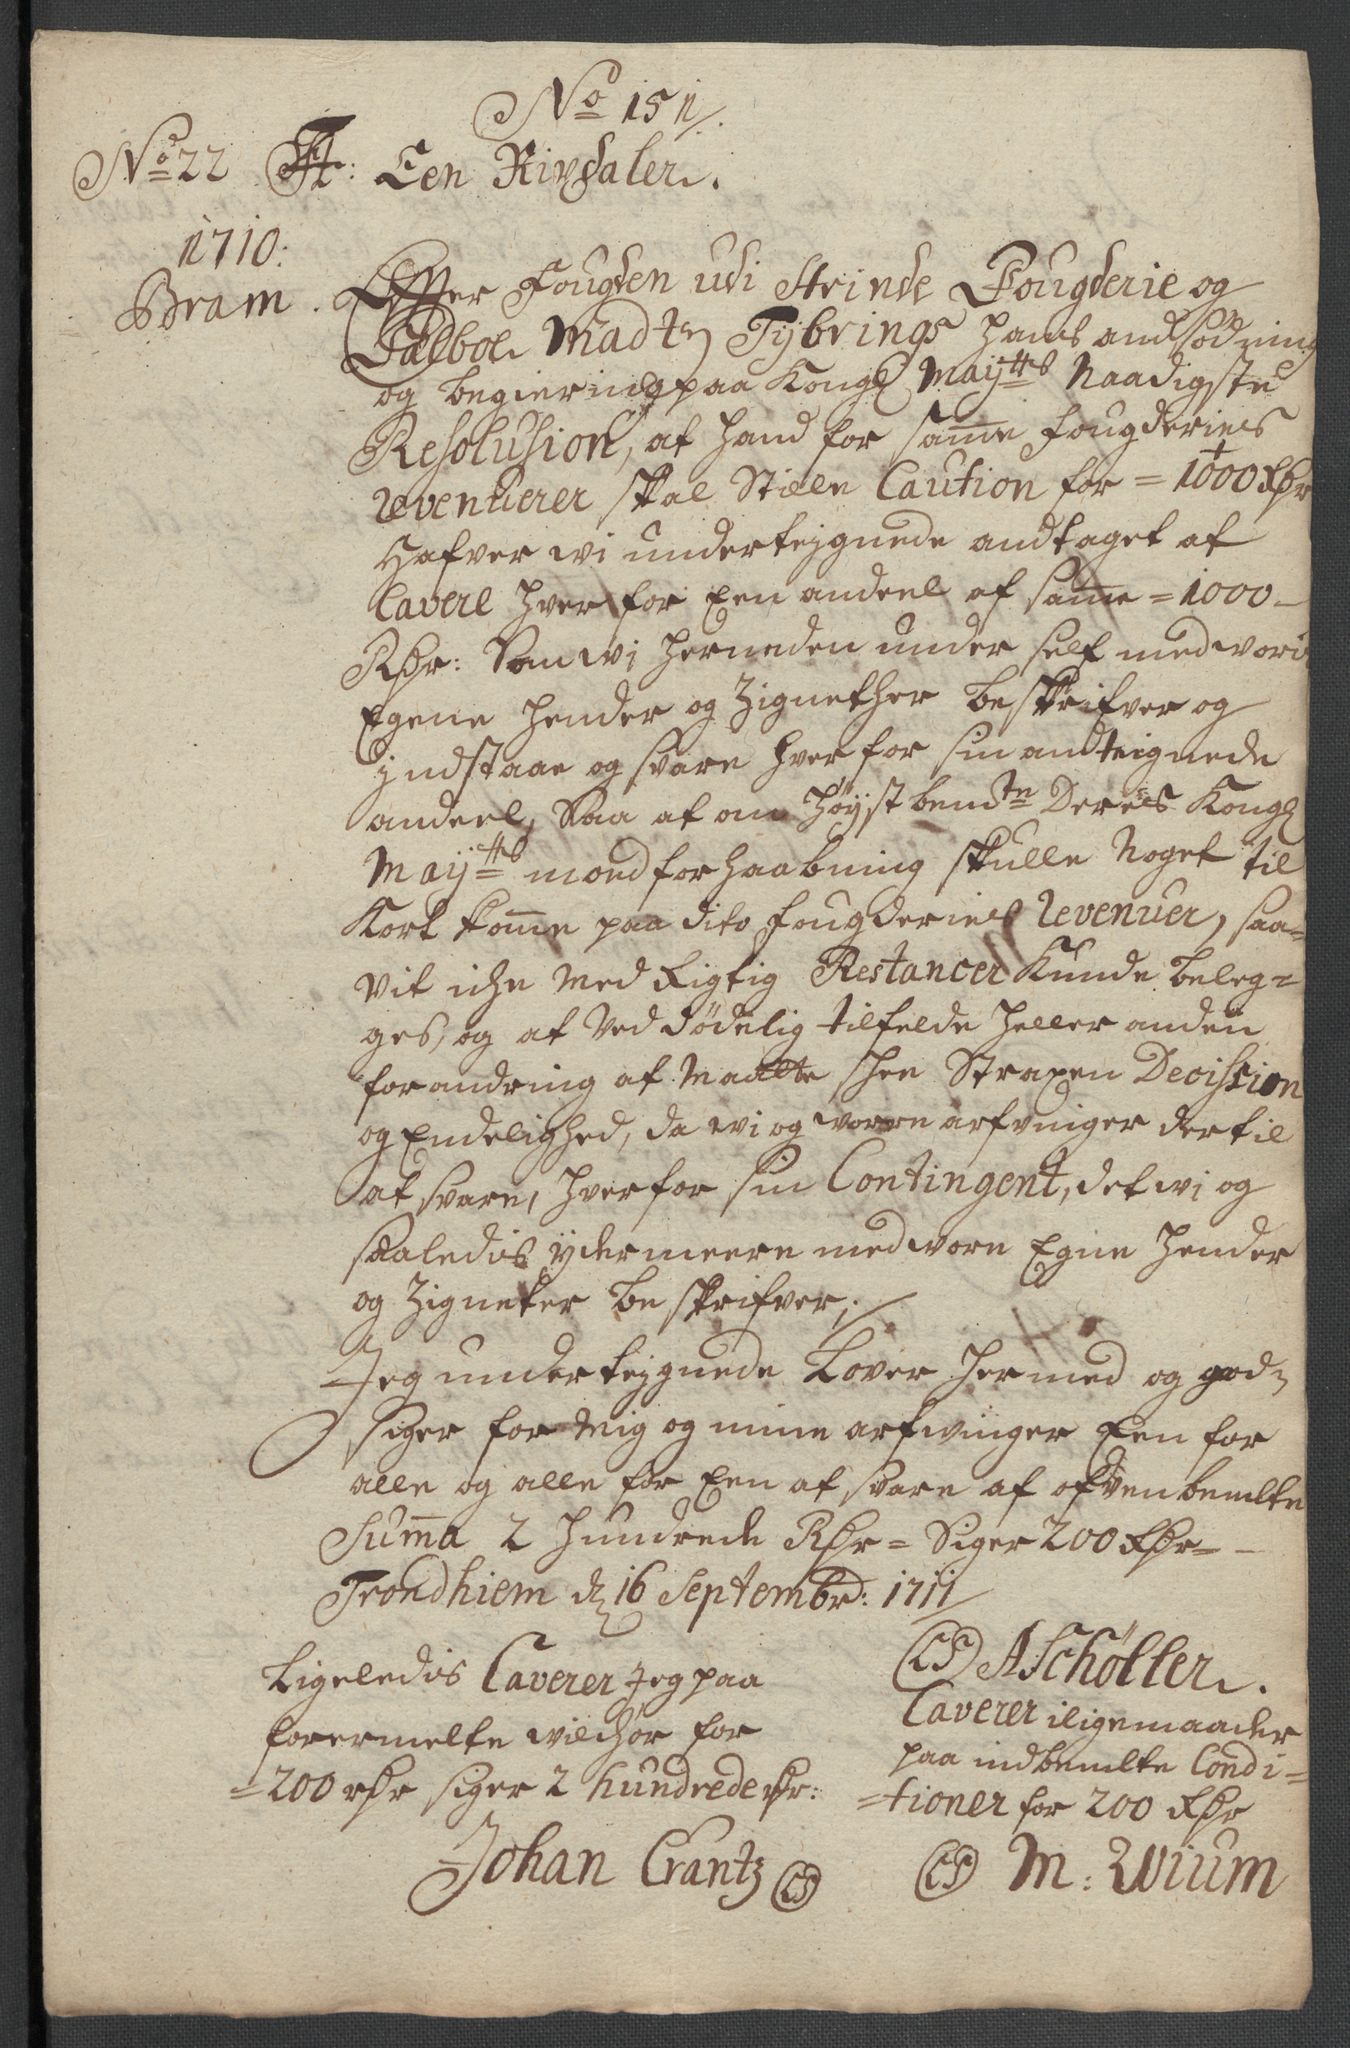 No 151/.
No 22 Een Rixdaler.
1710:
Bram.
Effter Fougden udi Strinde Fougderie og
Sælboe Madtz Tybrings hans andsødning
og begiering paa Kongl Mayts Naadigste
Resolusion, at hand for samme fougderies
Revenuerer skal Stille Caution for = 1000 Rdr
Hafver wi undertejgnede andtaget at
Cavere hver for Een andeel af samme = 1000 –
Rdr: Som wi herneden under self med vore
Egene hender og Zignether beskrifver og
jndstaae og svare hver for sin andteignede
andeel, Saa at om höystbemte Deres Kongl
Mayts moed forhaabning skulle noget til
Kort komme paa dito fougderies Revenuer, saa=
vit iche med Rigtig Restancer Kunde beleg=
ges, og at ved dödelig tilfelde heller anden
forandring at Maatte schee Straxen Decission
og Endelighed, da wi og worre arfvinger dertil
at svare, hver for sin Contingent, det wi og
saaledis ydermeere med wore Egne hender
og Zigneter beskrifver;
Jeg undertejgnede Lover hermed og god=
siger for Mig og mine arfwinger Een for
alle og alle for Een at svare af ofvenbemlte
Summa 2 hundrede Rdr = Siger 200 Rdr = –
Trondhiem d 16 Septembr: 1711/
Ligeledis Caverer Jeg paa
forermelte wilchor for
= 200 rdr siger 2 hundrede rdr:
Johan Crantz (LS)
(LS) A Schøller.
Caverer iligemaader
paa indbemlte Condi=
=tioner for 200 Rdr
(LS) M: Wium